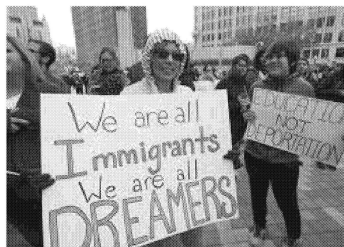 We are all
Immigrants
We are all
DREAMERS
EDUCATION
NOT
DEPORTATION